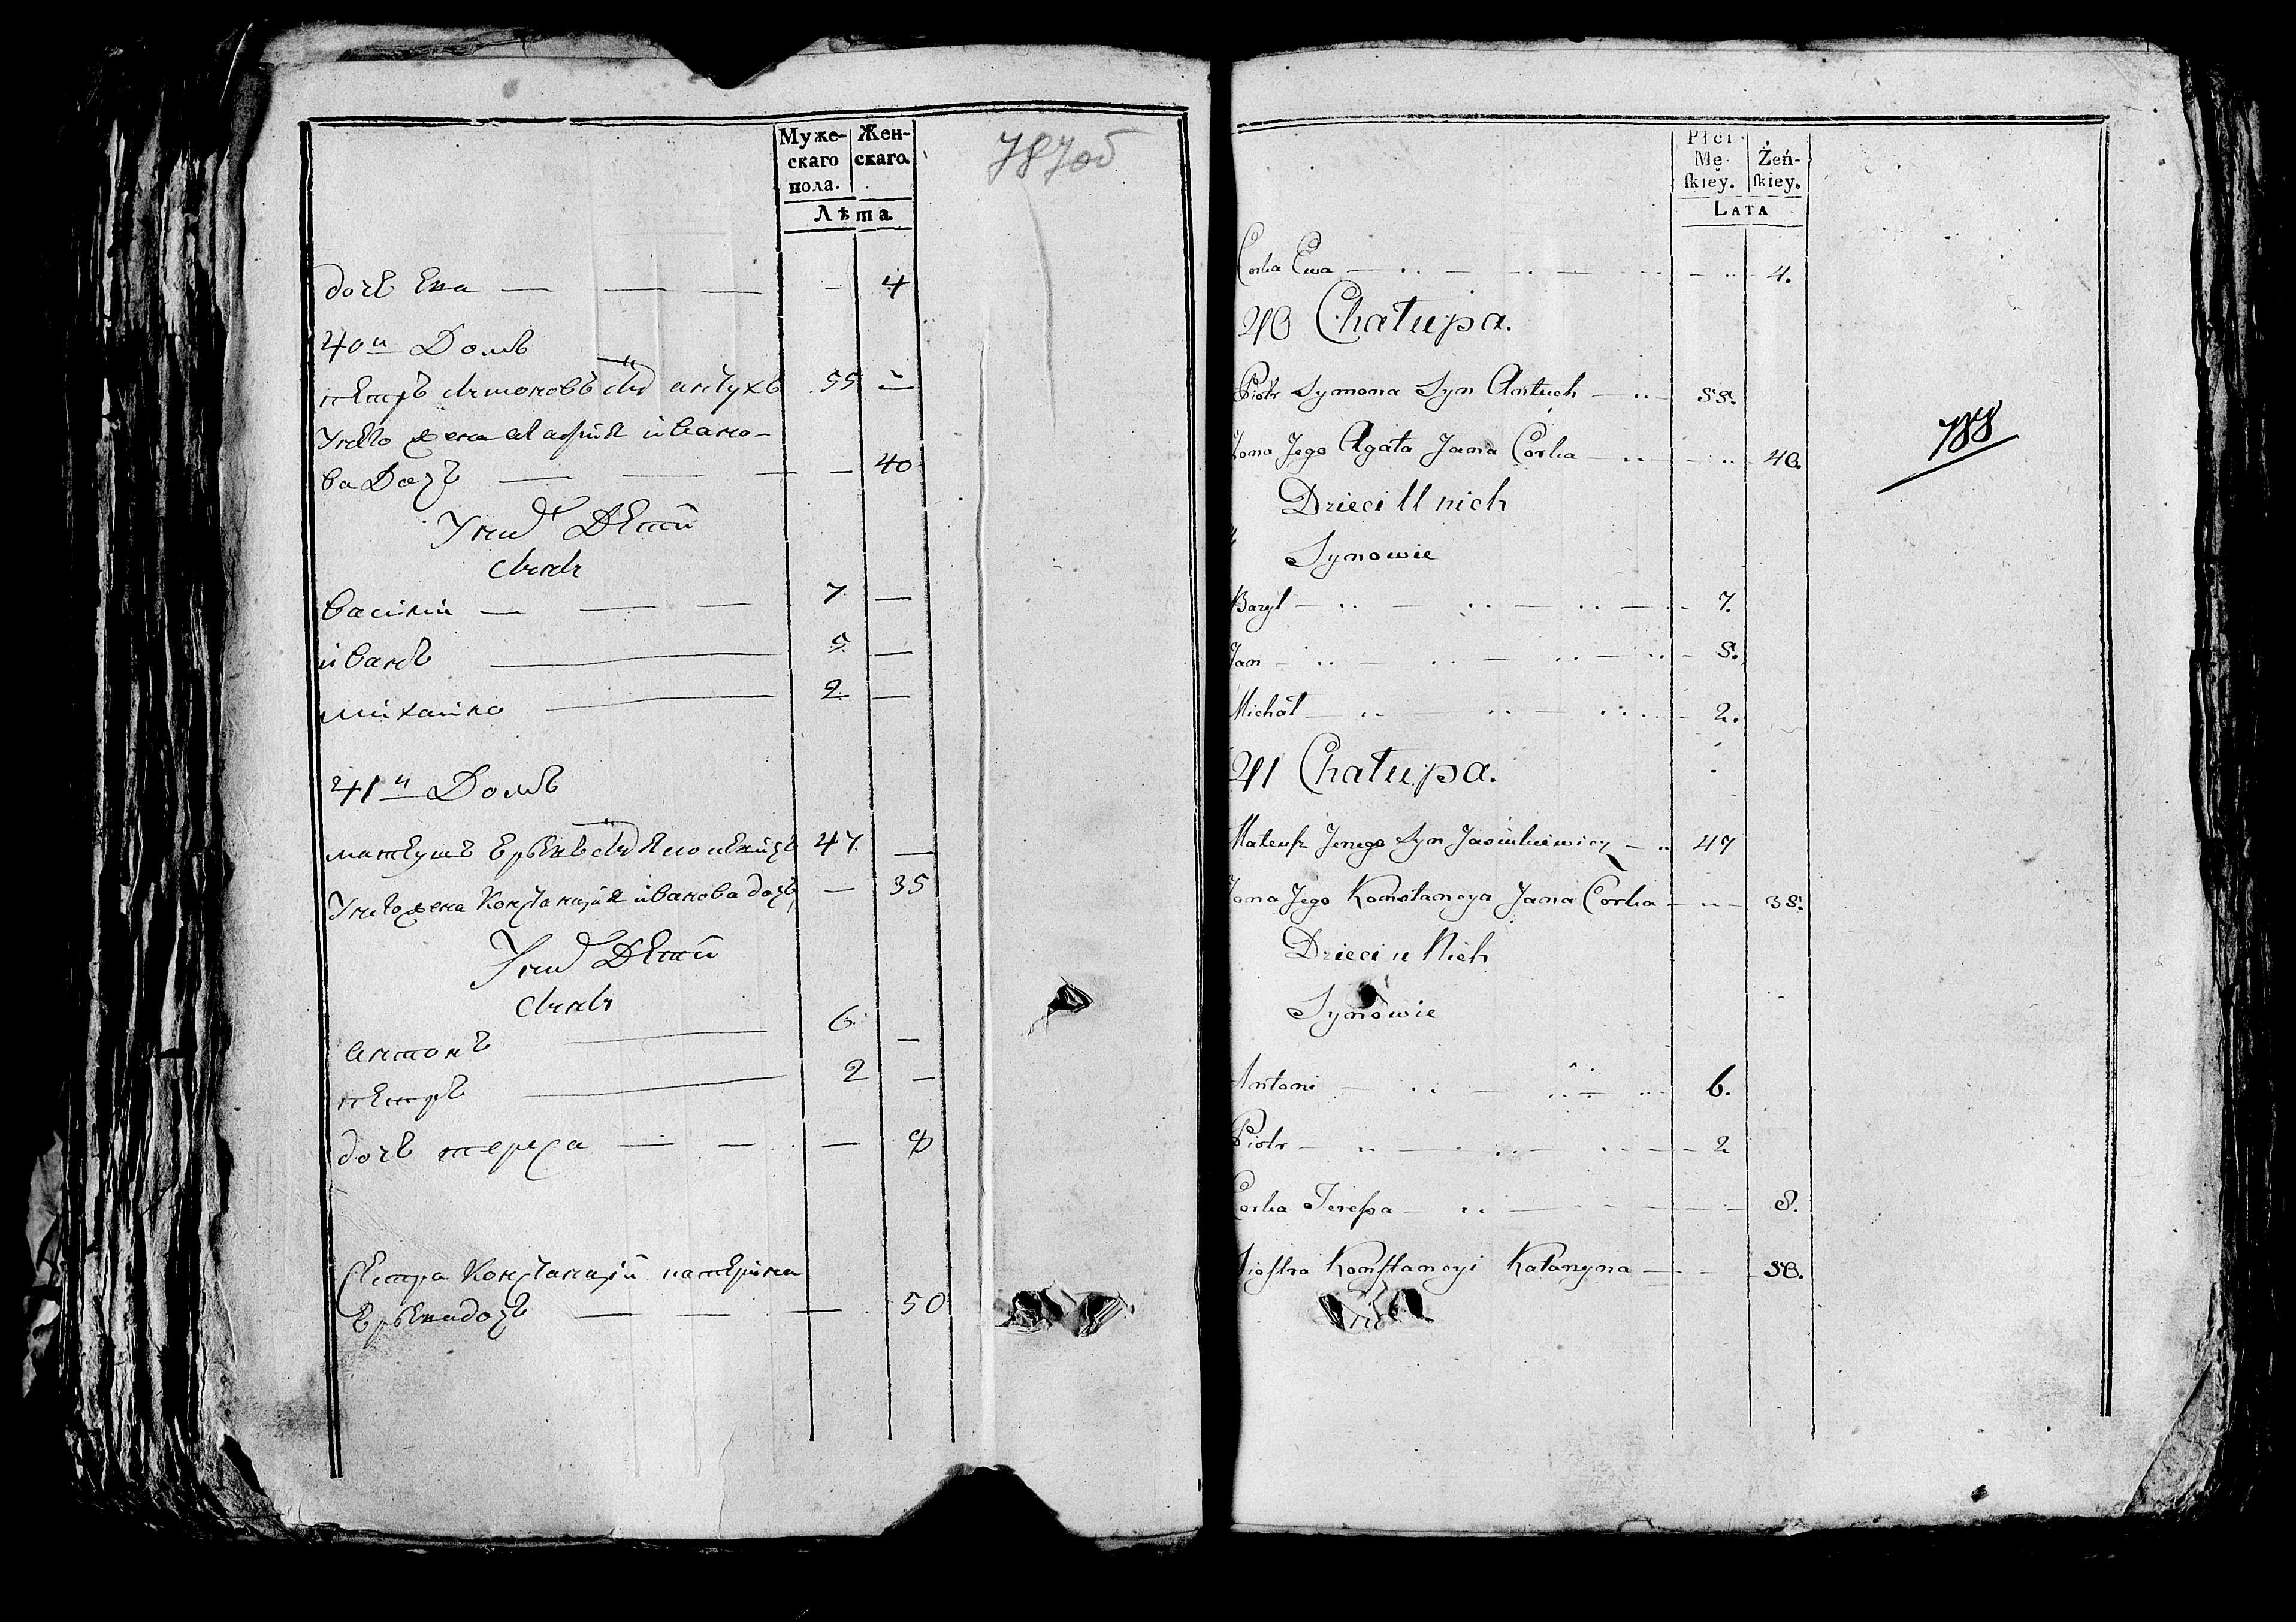 Муже-
скаго
пола.
Жен-
скаго.
Лѣта
787об
дочь Ева — — — — 4
40й Домъ
петръ Симоновъ сы антухъ 55 —
У него жена агафия ивано-
ва Дочь — — — — 40
У них Дети
сыны
василий — — — 7 —
иванъ — 5 —
михайло — 2 —
41й Домъ
матеушъ сы 47 —
У него жена Констанция иванова дочь — 35
У них Дети
сыны
антонъ — 6 —
петръ — 2 —
дочь тереса — — — — 8
Сестра Констанции катерина
дочь — — — 50
Płci
Mę-
ſkiey.
Żeń-
ſkiey.
LATA
788
Corka Ewa — 4.
40 Chałupa.
Piotr Symona Syn Antuch — 55.
Żona Jego Agata Jana Corka — 40.
Dzieci U nich
Synowie
Bazyl — 7.
Jan — 5.
Michał — 2.
41 Chałupa.
Mateuſz Jerzego Syn Jasiukiewicz — 47
Żona Jego Konstancya Jana Corka — 35.
Dzieci u Nich
Synowie
Antoni — 6.
Piotr — 2
Corka Tereſsa — 8.
Sioſtra Konſtancyi Katarzyna — 50.